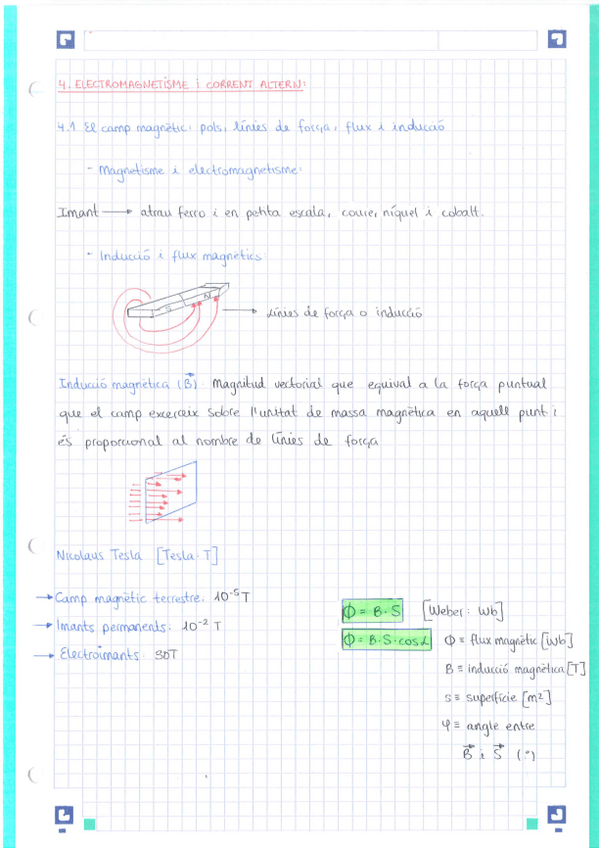 4. ELECTROMAGNETISME i CORRENT ALTERN:
4.1 El camp magnètic: pols, línies de força, flux i inducció
- Magnetisme i electromagnetisme:
Imant → atrau ferro i en petita escala, coure, níquel i cobalt.
- Inducció i flux magnètics:
S N
Línies de força o inducció
Inducció magnètica (B⃗): Magnitud vectorial que equival a la força puntual
que el camp excerceix sobre l'unitat de massa magnètica en aquell punt i
és proporcional al nombre de línies de força
Nicolaus Tesla [Tesla: T]
→ Camp magnètic terrestre: 10⁻⁵ T
→ Imants permanents: 10⁻² T
→ Electroimants: 30T
Φ = B·S [Weber: Wb]
Φ = B·S·cos α
Φ = flux magnètic [Wb]
B ≡ inducció magnètica [T]
S ≡ superfície [m²]
φ ≡ angle entre
B⃗ i S⃗ (°)